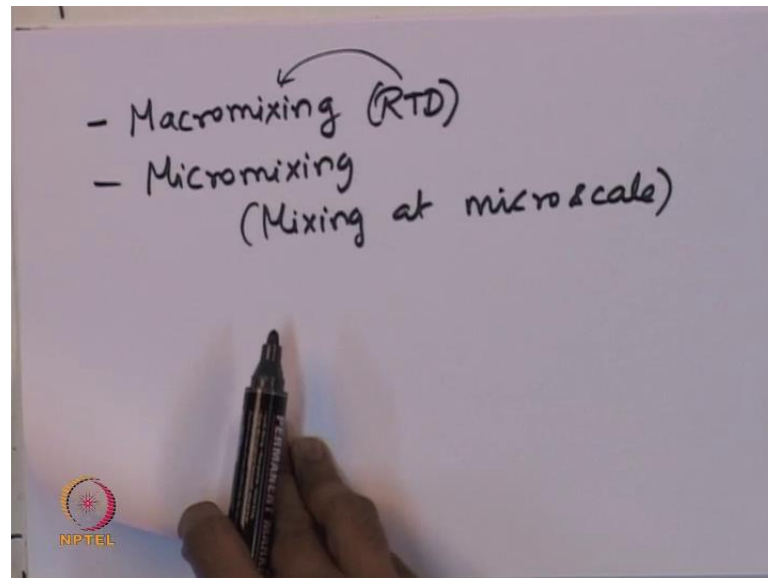 - Macromixing (RTD)
- Micromixing
(Mixing at microscale)
PERMANENT
NPTEL